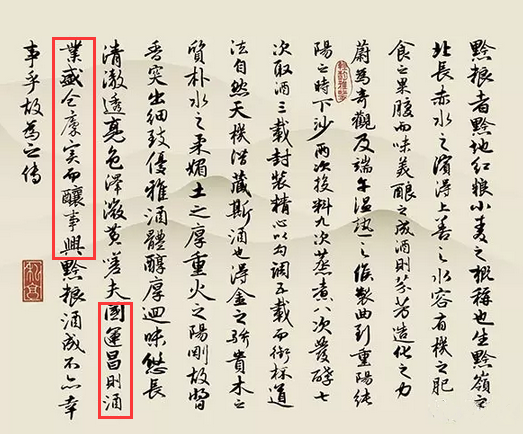 黔粮者黔地红粮小麦之概稱也生黔嶺之
北長赤水之濱得上善之水容有機之肥
食之果腹而味美釀之成酒則芬芳造化之力
蔚為奇觀及端午温熱之候製曲到重陽純
陽之時下沙两次投料九次蒸煮八次發酵七
次取酒三載封裝精心以勾調五載而銜杯道
法自然天機藏斯酒也得金之貴木之
質朴水之柔媚土之厚重火之陽剛故
香突出細致優雅酒體醇厚迴味悠長
清澈透亮色澤微黄嗟夫國運昌則酒
業盛仓廩实而釀事興黔粮酒成不亦幸
事乎故為之傳